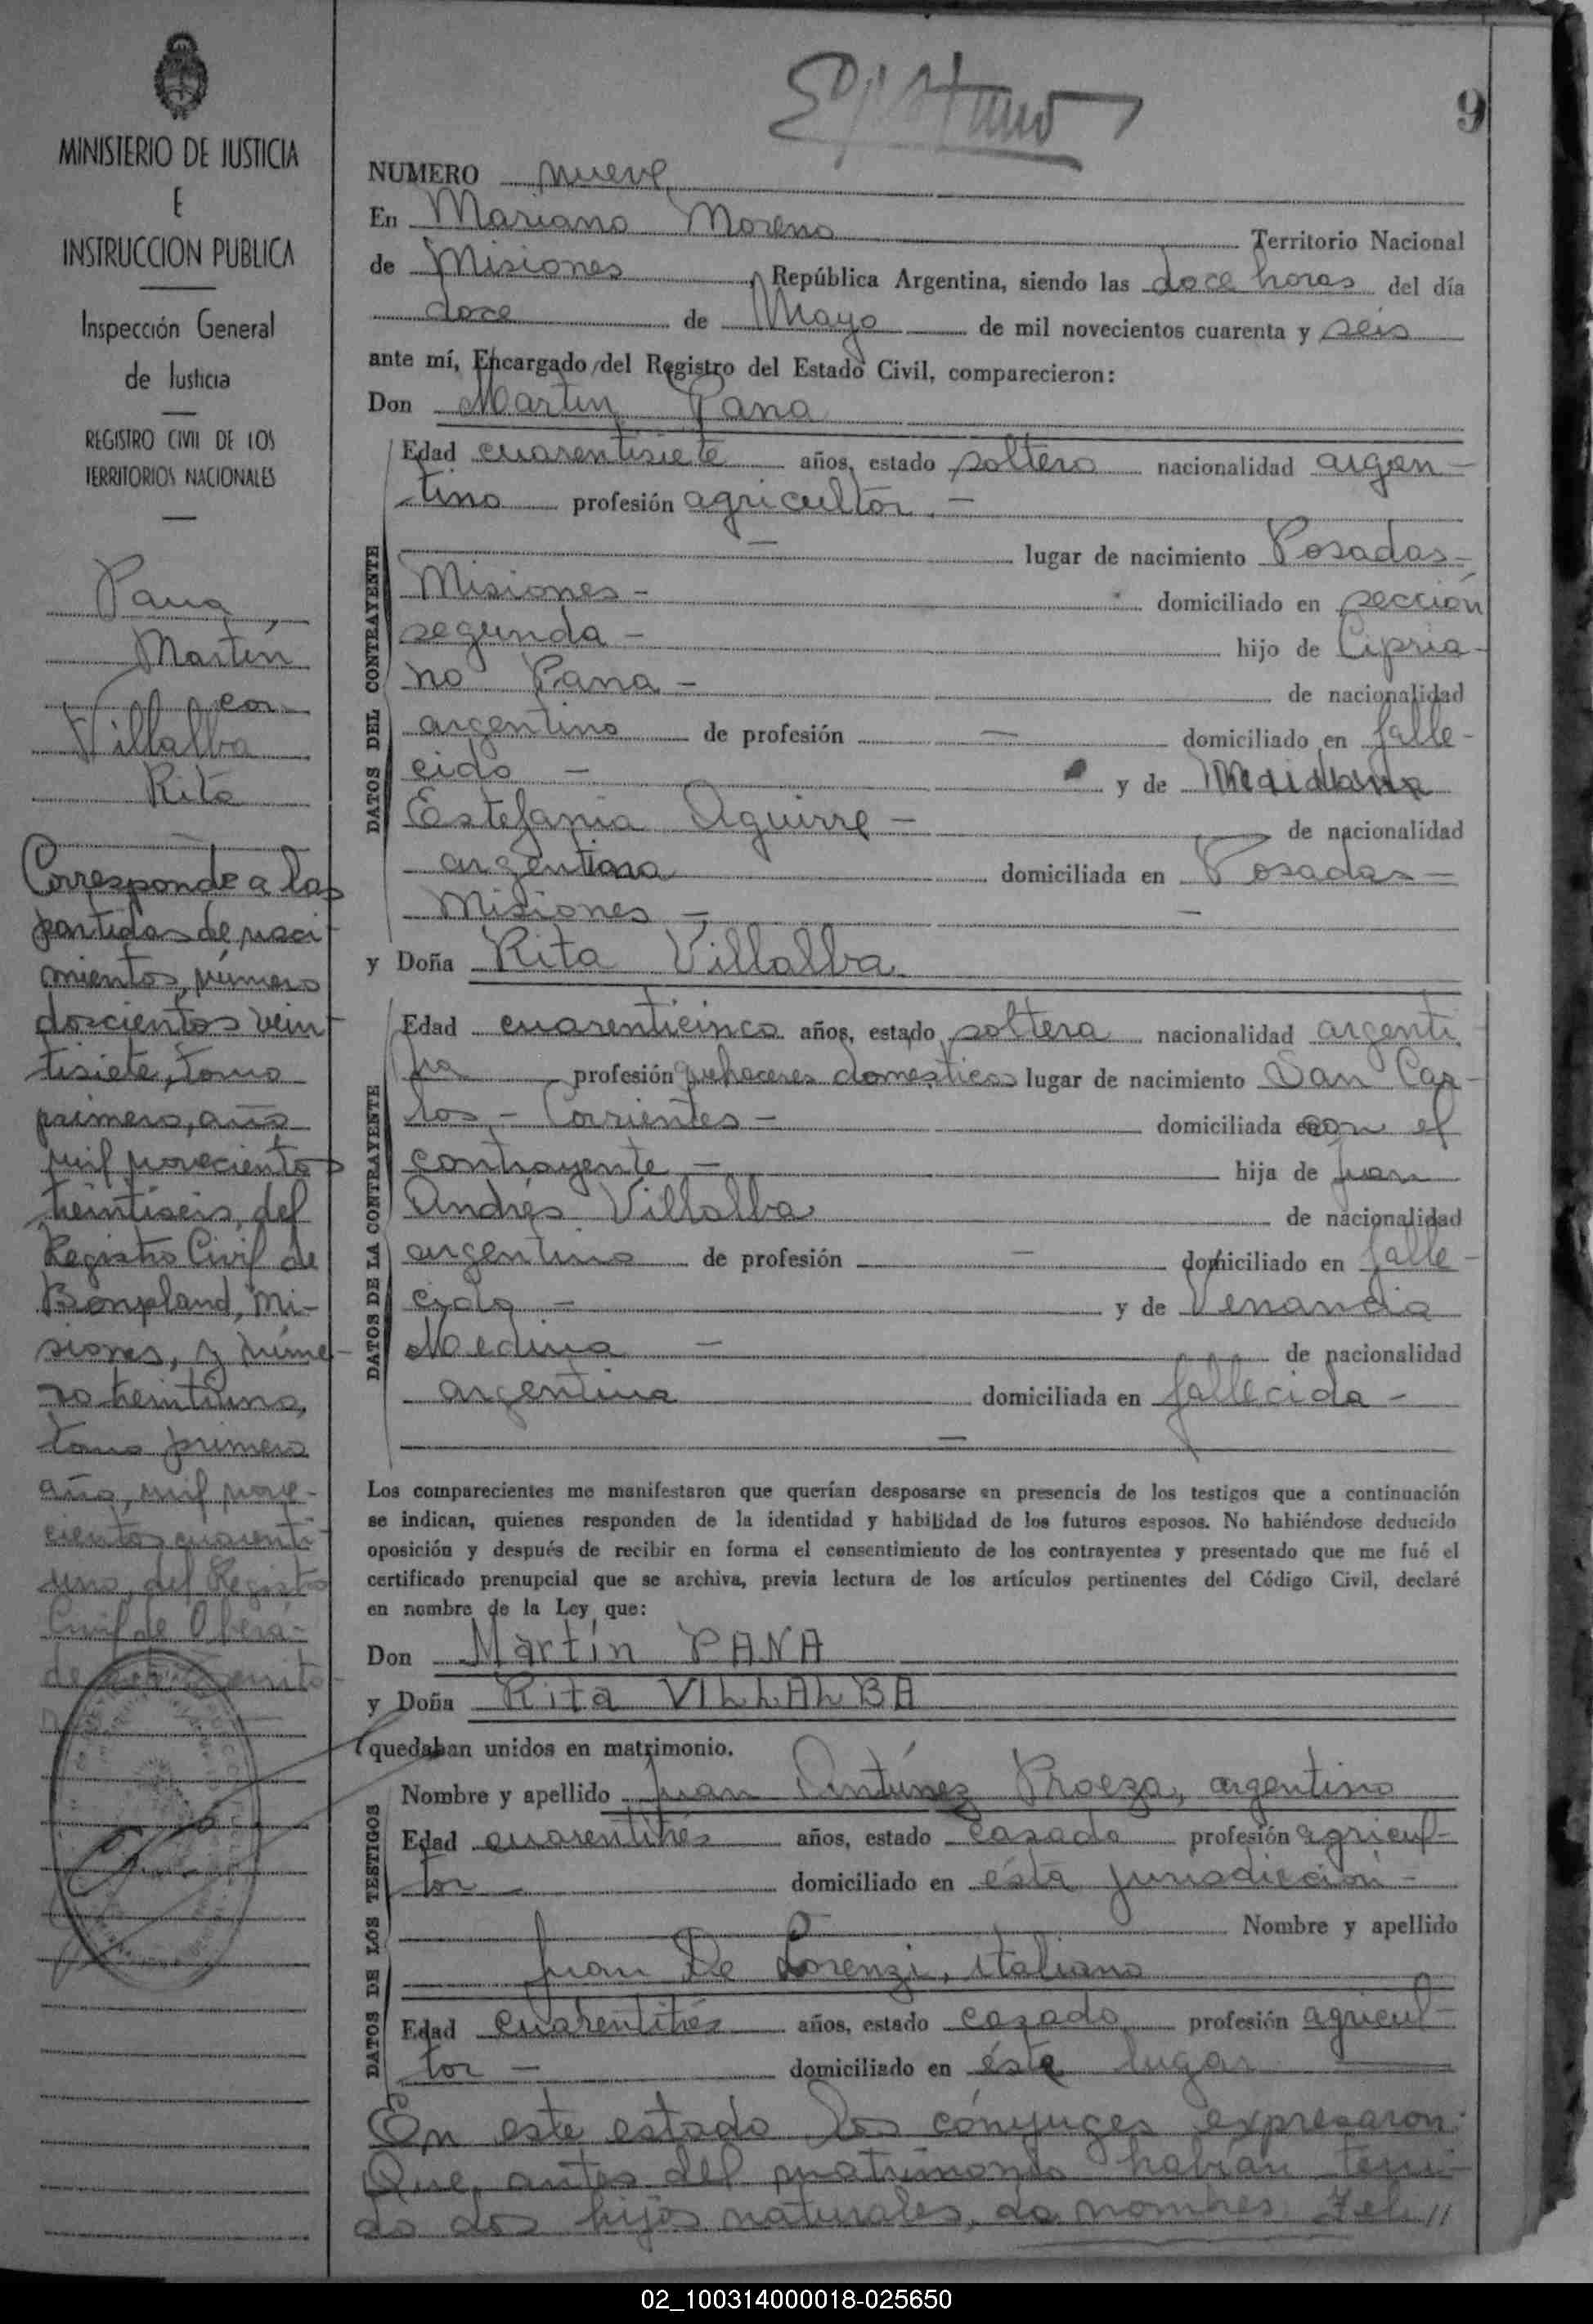 9
MINISTERIO DE JUSTICIA
E
INSTRUCCION PUBLICA
Inspección General
de Justicia
REGISTRO CIVIL DE LOS
TERRITORIOS NACIONALES
Pana
Martín
con
Villalba
Rita
Corresponde a las
partidas de naci
mientos, número
doscientos vein
tisiete, tomo
primero, año
mil novecientos
treintiseis, del
Registro Civil de
Bonpland, Mi-
siones, y núme-
ro treintiuno,
tomo primero
año, mil nove-
cientos cuarenti
uno, del Registro
Civil de Oberá-
de territo-
NUMERO nueve
En Mariano Moreno Territorio Nacional
de Misiones, República Argentina, siendo las doce horas del día
doce de Mayo de mil novecientos cuarenta y seis
ante mí, Encargado del Registro del Estado Civil, comparecieron:
Don Martin Pana
DATOS DEL CONTRAYENTE
Edad cuarentisiete años, estado soltero nacionalidad argen-
tino profesión agricultor. -
- lugar de nacimiento Posadas-
Misiones - domiciliado en sección
segunda - hijo de Cipria-
no Pana - de nacionalidad
argentino de profesión - domiciliado en falle-
cido - y de
Estefania Aguirre - de nacionalidad
argentina domiciliada en Posadas-
Misiones - -
y Doña Rita Villalba
DATOS DE LA CONTRAYENTE
Edad cuarenticinco años, estado soltera nacionalidad argenti
na profesión quehaceres domesticos lugar de nacimiento San Car-
los - Corrientes - domiciliada con el
contrayente - hija de Juan
Andrés Villalba de nacionalidad
argentino de profesión - domiciliado en falle-
cido - y de Venancia
Medina - de nacionalidad
argentina domiciliada en fallecida -
-
Los comparecientes me manifestaron que querían desposarse en presencia de los testigos que a continuación
se indican, quienes responden de la identidad y habilidad de los futuros esposos. No habiéndose deducido
oposición y después de recibir en forma el consentimiento de los contrayentes y presentado que me fué el
certificado prenupcial que se archiva, previa lectura de los artículos pertinentes del Código Civil, declaré
en nombre de la Ley que:
Don Martín PANA
y Doña Rita VILLALBA
quedaban unidos en matrimonio.
DATOS DE LOS TESTIGOS
Nombre y apellido Juan Antúnez Proeza, argentino
Edad cuarentitrés años, estado casado profesión agricul-
tor - domiciliado en ésta jurisdicción -
Nombre y apellido
Juan De Lorenzi, italiano
Edad cuarentitrés años, estado casado profesión agricul-
tor - domiciliado en éste lugar
En este estado los cónyuges expresaron:
Que, antes del matrimonio habían teni-
do dos hijos naturales, de nombres Feli//
02_100314000018-025650